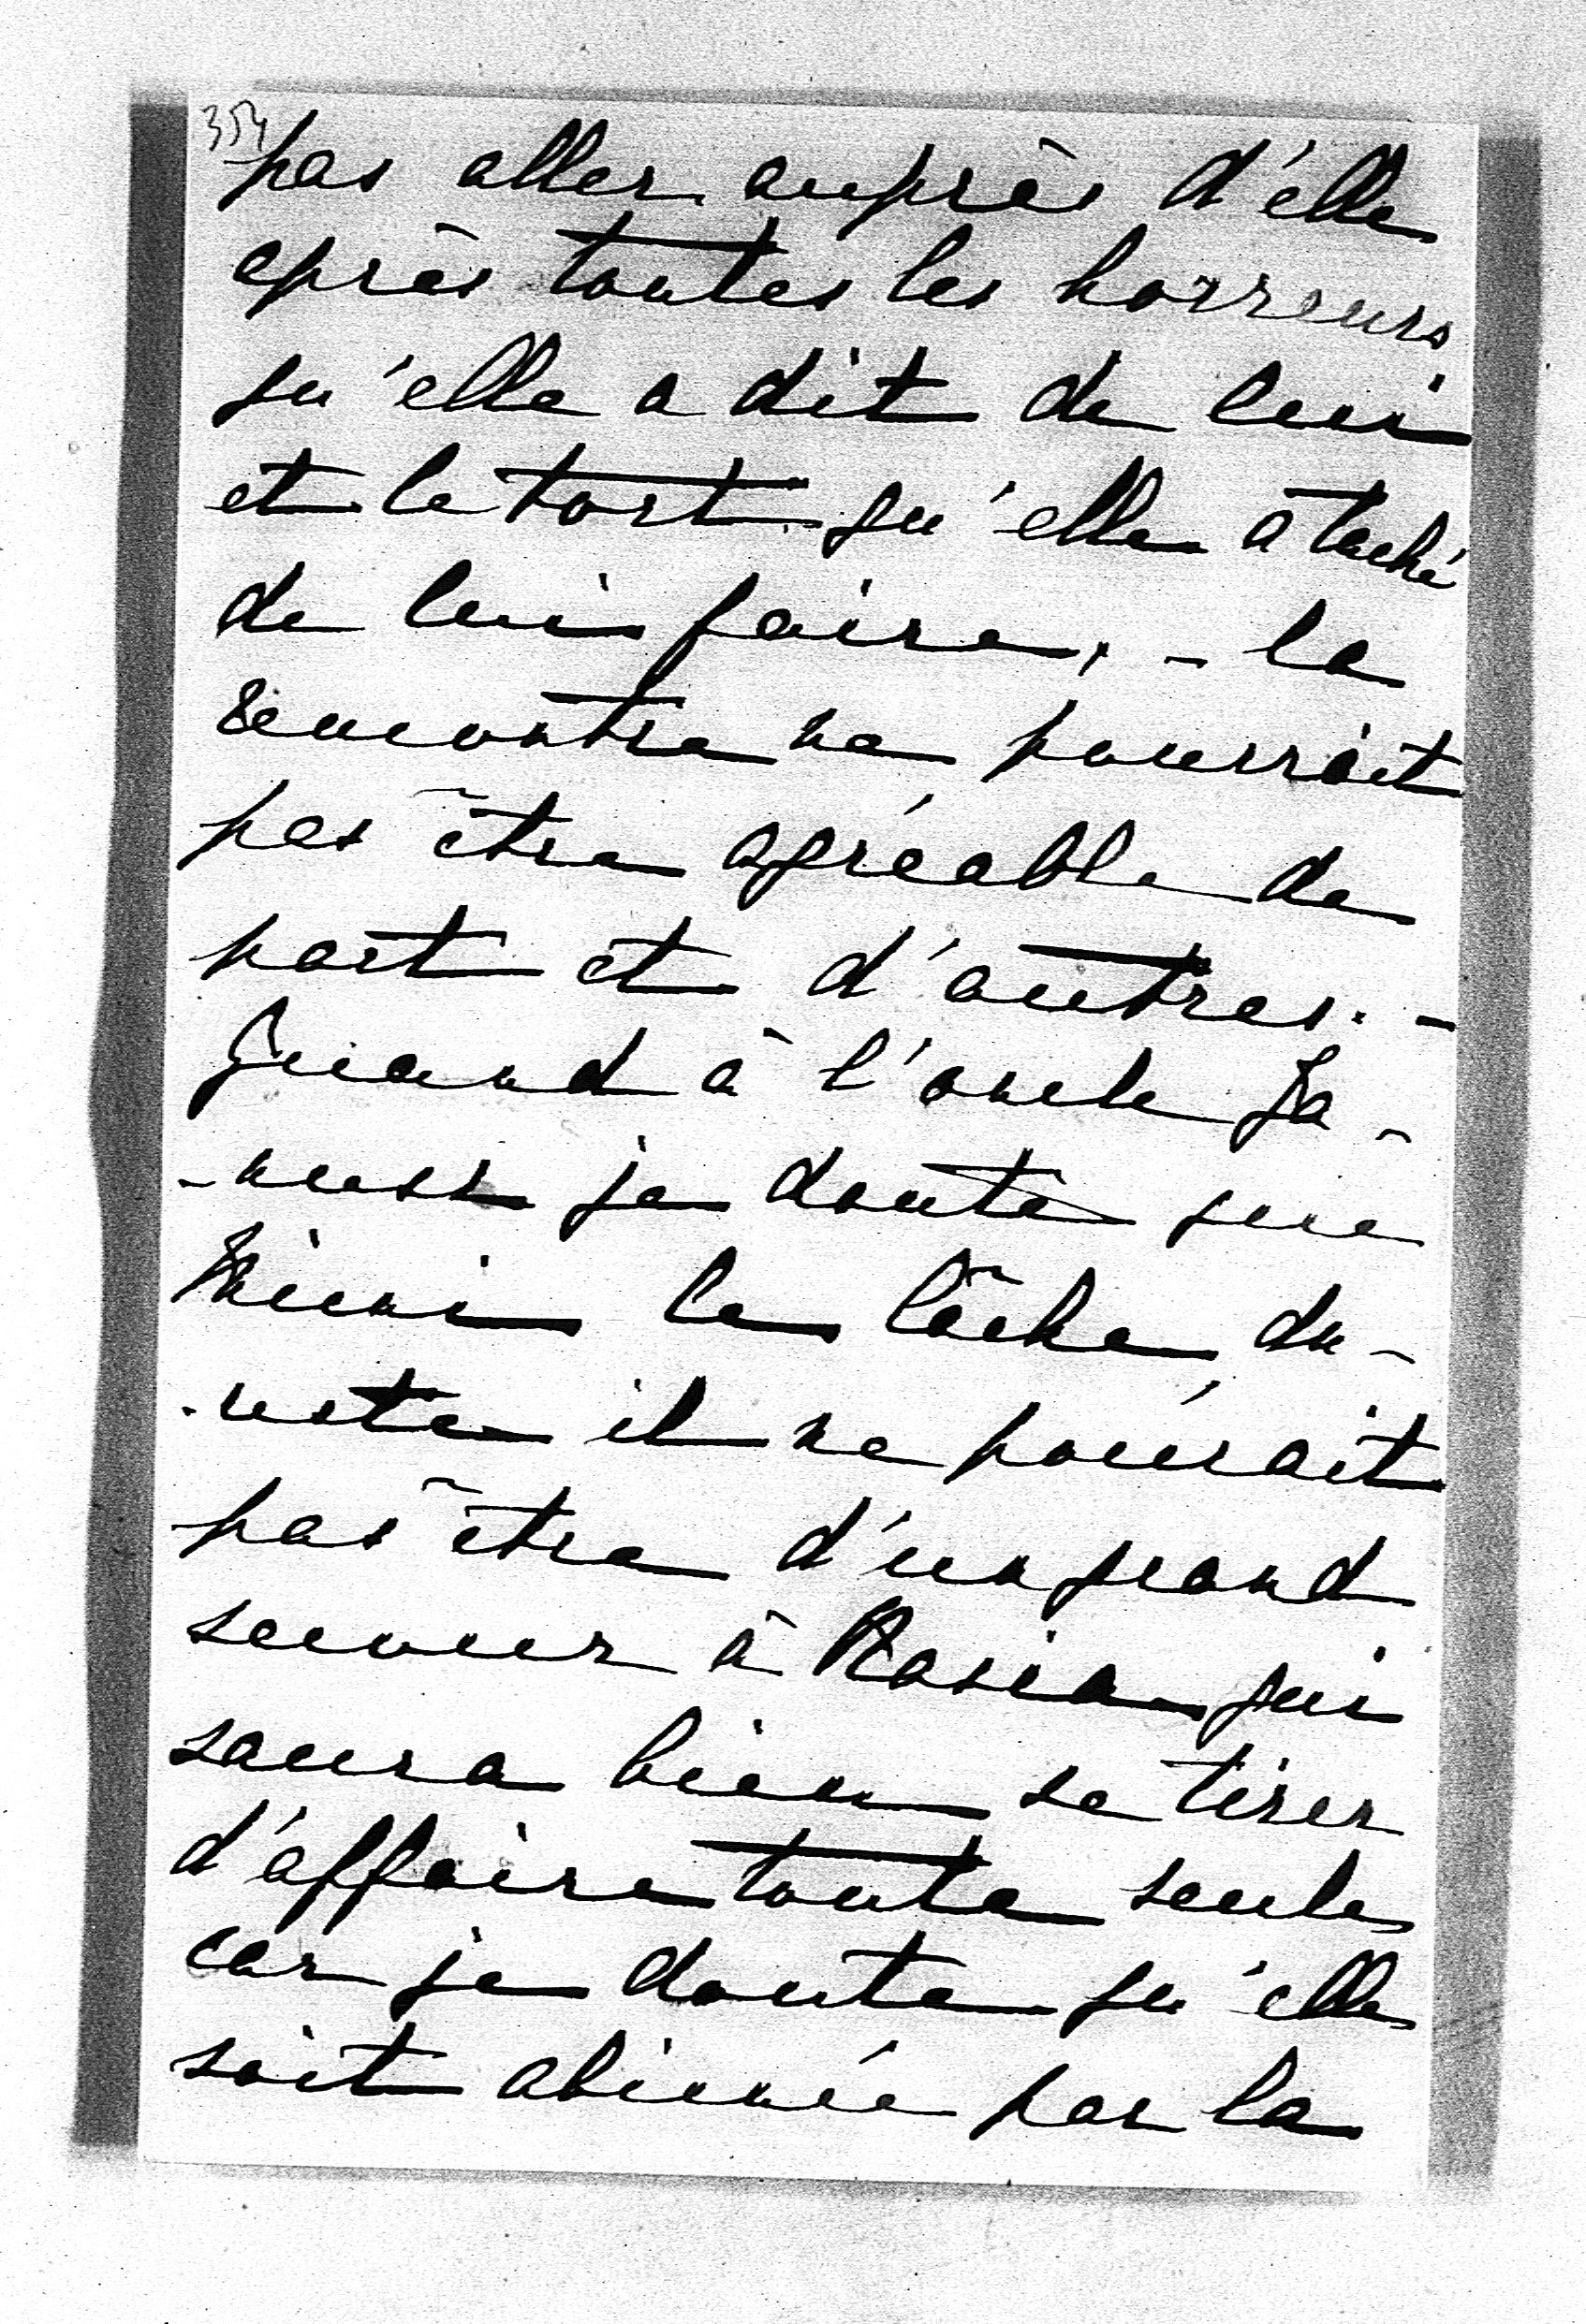 354
pas aller auprès d'elle
après toutes les horreurs
qu'elle a dit de lui
et le tort qu'elle a taché
de lui faire, - la
rencontre ne pourrait
pas être agréable de
part et d'autres. -
Quand à l'oncle Ja-
-nusz je doute que
Mimi le lâche, du-
-reste il ne pourrait
pas être d'un grand
secours à Rosia qui
saura bien se tirer
d'affaire toute seule
car je doute qu'elle
soit abimée par la